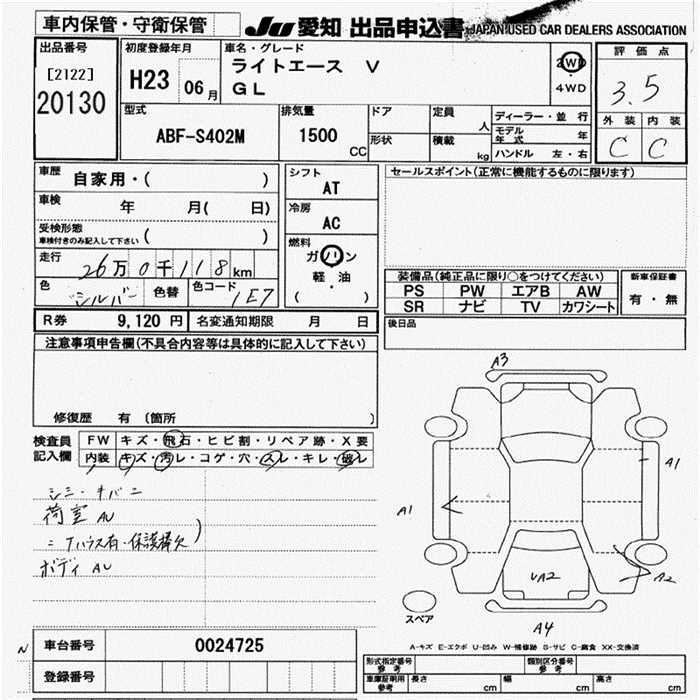 車内保管・守衛保管
JU 愛知 出品申込書 JAPAN USED CAR DEALERS ASSOCIATION
出品番号
[2122]
20130
初度登録年月
H23 06月
車名・グレード
ライトエース V
GL
2WD
4WD
評価点
3.5
外装 内装
C C
型式
ABF-S402M
排気量
1500 CC
ドア
形状
定員 人
積載 kg
ディーラー・並行
モデル年式 年
ハンドル 左・右
車歴 自家用・( )
車検 年 月( 日)
受検形態
車検付きのみ記入して下さい ( )
走行 26万0千118km
色 シルバー 色替 色コード 1E7
シフト
AT
冷房
AC
燃料
ガソリン
軽・油
( )
セールスポイント(正常に機能するものに限ります)
装備品(純正品に限り○をつけてください)
PS PW エアB AW
SR ナビ TV カワシート
新車保証書
有・無
後日品
R券 9,120円 名変通知期限 月 日
注意事項申告欄(不具合内容等は具体的に記入して下さい)
修復歴 有 (箇所 )
検査員記入欄
FW キズ・飛石・ヒビ割・リペア跡・X要
内装 キズ・汚レ・コゲ・穴・スレ・キレ・破レ
荷室 AU
ボディ AU
A3
A1
A1
A2
UA2
A4
スペア
A-キズ E-エクボ U-凹み W-補修跡 S-サビ C-腐食 XX-交換済
N 車台番号 0024725
登録番号
形式指定番号 参考
類別区分番号 参考
車庫証明用 参考 長さ cm 幅 cm 高さ cm